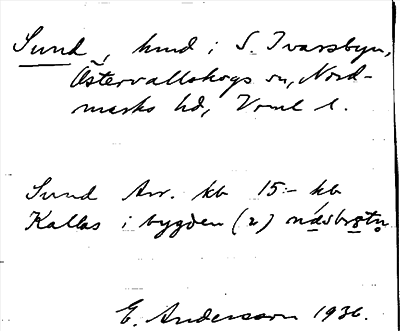 Sund, hmd i S. Ivarsbyn,
Östervallskogs sn, Nord-
marks hd, Vrml l.
Sund Arr. kb 15:- kb
Kallas i bygden (2)
E. Andersson 1936.